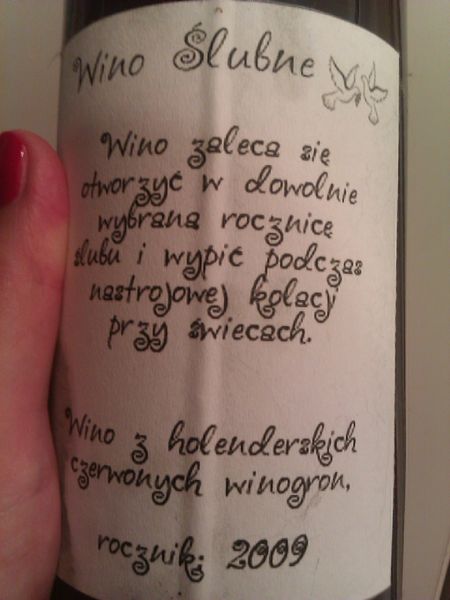 Wino Ślubne
Wino zaleca się
otworzyć w dowolnie
wybraną rocznicę
ślubu i wypić podczas
nastrojowej kolacy
przy świecach.
Wino z holenderskich
czerwonych winogron,
rocznik: 2009